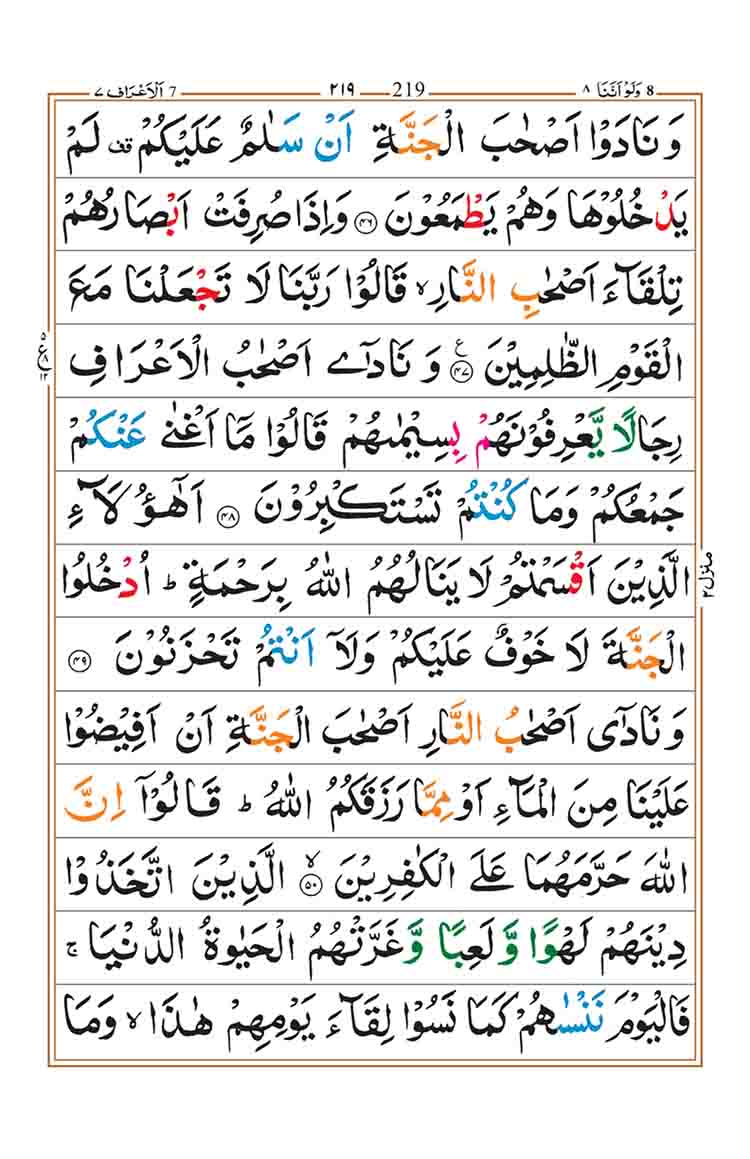 8 وَلَوۡ اَنَّنَا ٨ 219 ٢١٩ 7 اَلۡاَعۡرَاف ٧
وَ نَادَوۡا اَصۡحٰبَ الۡجَنَّةِ اَنۡ سَلٰمٌ عَلَيۡكُمۡ قف لَمۡ
يَدۡخُلُوۡهَا وَهُمۡ يَطۡمَعُوۡنَ ۝٤٦ وَاِذَا صُرِفَتۡ اَبۡصَارُهُمۡ
تِلۡقَآءَ اَصۡحٰبِ النَّارِ ۙ قَالُوۡا رَبَّنَا لَا تَجۡعَلۡنَا مَعَ
الۡقَوۡمِ الظّٰلِمِيۡنَ ۝٤٧ ع وَ نَادٰٓى اَصۡحٰبُ الۡاَعۡرَافِ
٥ ع ٨ ١٢
رِجَالًا يَّعۡرِفُوۡنَهُمۡ بِسِيۡمٰٮهُمۡ قَالُوۡا مَاۤ اَغۡنٰى عَنۡكُمۡ
جَمۡعُكُمۡ وَمَا كُنۡتُمۡ تَسۡتَكۡبِرُوۡنَ ۝٤٨ اَهٰٓؤُلَاۤءِ
الَّذِيۡنَ اَقۡسَمۡتُمۡ لَا يَنَالُهُمُ اللّٰهُ بِرَحۡمَةٍ ؕ اُدۡخُلُوا
منزل ٢
الۡجَنَّةَ لَا خَوۡفٌ عَلَيۡكُمۡ وَلَاۤ اَنۡتُمۡ تَحۡزَنُوۡنَ ۝٤٩
وَ نَادٰٓى اَصۡحٰبُ النَّارِ اَصۡحٰبَ الۡجَنَّةِ اَنۡ اَفِيۡضُوۡا
عَلَيۡنَا مِنَ الۡمَآءِ اَوۡ مِمَّا رَزَقَكُمُ اللّٰهُ ؕ قَالُوۡۤا اِنَّ
اللّٰهَ حَرَّمَهُمَا عَلَى الۡكٰفِرِيۡنَ ۝٥٠ ۙ الَّذِيۡنَ اتَّخَذُوۡا
دِيۡنَهُمۡ لَهۡوًا وَّلَعِبًا وَّغَرَّتۡهُمُ الۡحَيٰوةُ الدُّنۡيَا ۚ
فَالۡيَوۡمَ نَنۡسٰٮهُمۡ كَمَا نَسُوۡا لِقَآءَ يَوۡمِهِمۡ هٰذَا ۙ وَمَا